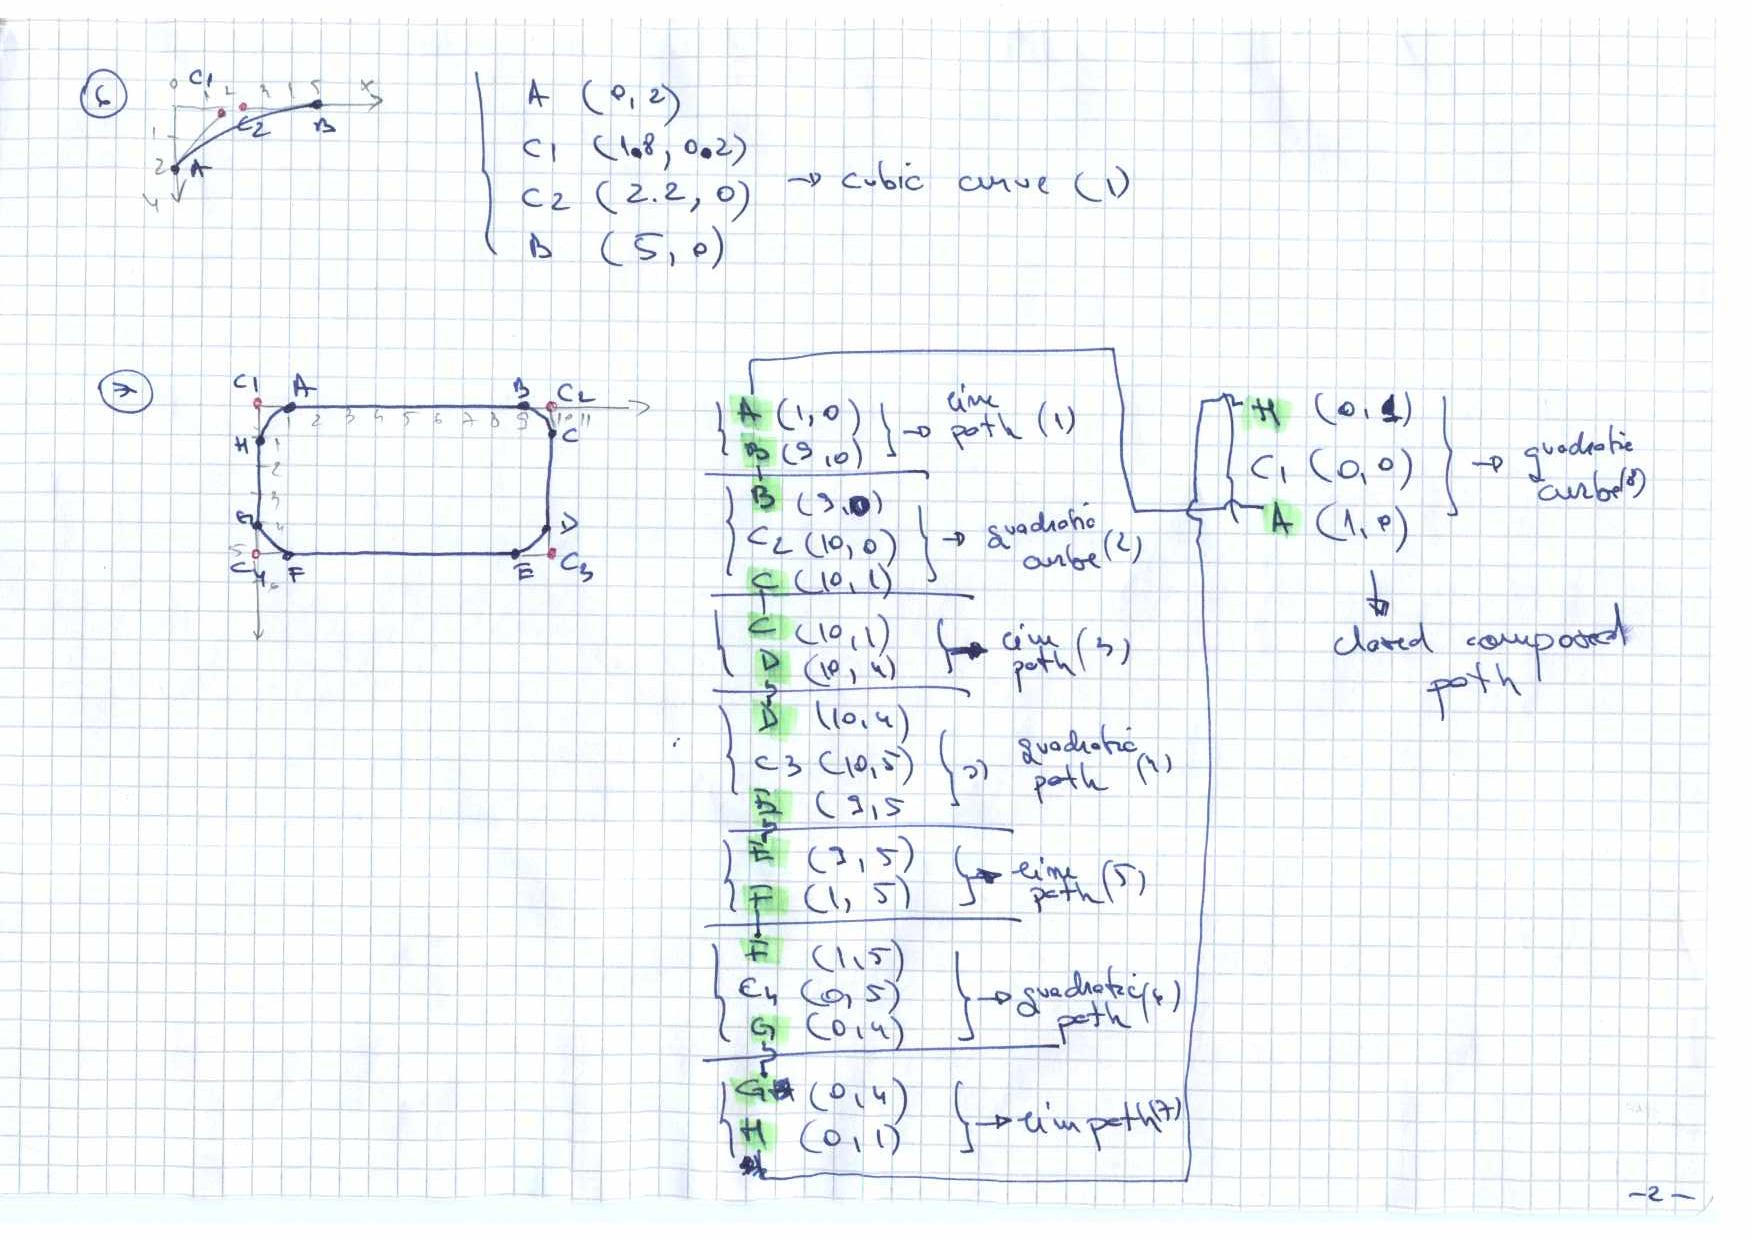 6
0 C1 2 3 4 5 x
C2 B
1
2 A
y
A (0,2)
C1 (1.8, 0.2)
C2 (2.2, 0) → cubic curve (1)
B (5, 0)
7
C1 A B C2
1 2 3 4 5 6 7 8 9 10 11
H 1 C
2
3
G 4 D
5
C4 F E C3
6
A (1,0)
B (9,0) → line path (1)
B (9,0)
C2 (10,0) → quadratic curbe (2)
C (10,1)
C (10,1)
D (10,4) → line path (3)
D (10,4)
C3 (10,5) → quadratic path (4)
(9,5
(9,5)
F (1,5) → line path (5)
F (1,5)
C4 (0,5) → quadratic path (6)
G (0,4)
G (0,4)
H (0,1) → lin path (7)
H (0,1)
C1 (0,0) → quadratic curbe (8)
A (1,0)
↓
closed composed
path
-2-